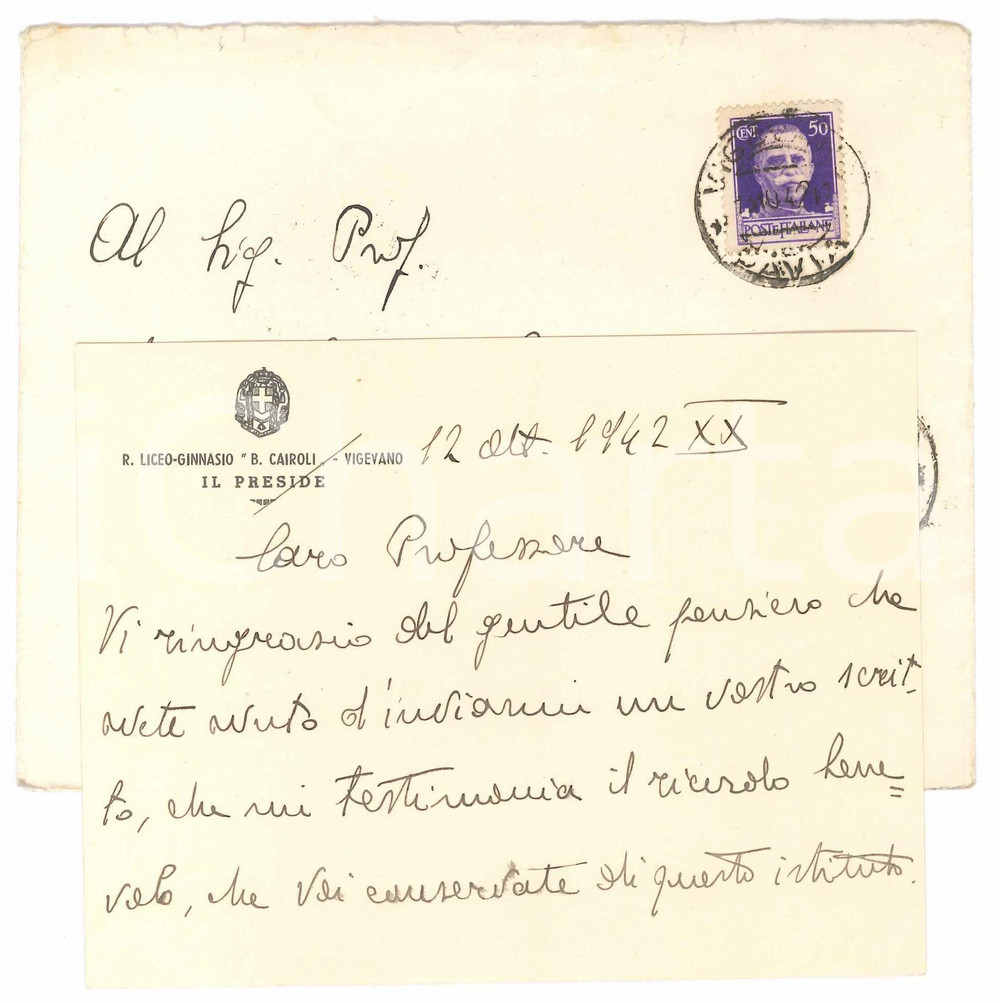 Al Sig. Prof.
CENT 50
POSTE ITALIANE
R. LICEO-GINNASIO "B. CAIROLI„ - VIGEVANO
IL PRESIDE
12 Ott. 1942 XX
Caro Professore
Vi ringrazio del gentile pensiero che
avete avuto d'inviarmi un vostro scrit-
to, che mi testimonia il ricordo bene=
volo, che Voi conservate di questo istituto.